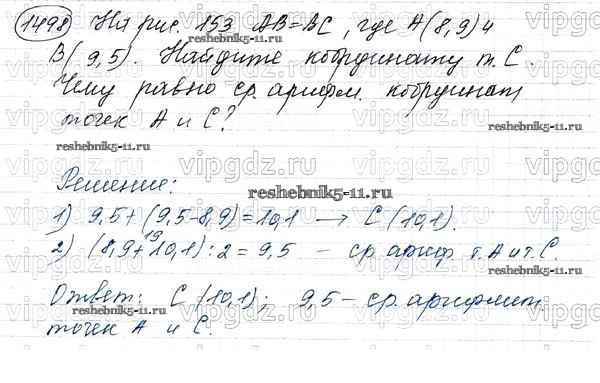 1498 На рис. 153 AB=BC, где A(8,9) и
B(9,5). Найдите координату т. C.
Чему равно ср. арифм. координат
точек A и C?
reshebnik5-11.ru
Решение:
reshebnik5-11.ru
1) 9,5+(9,5-8,9)=10,1 → C(10,1).
19
2) (8,9+10,1):2=9,5 – ср. ариф. т. A и т. C.
reshebnik5-11.ru
Ответ: C(10,1); 9,5 – ср. арифмет.
точек A и C.
reshebnik5-11.ru
vipgdz.ru